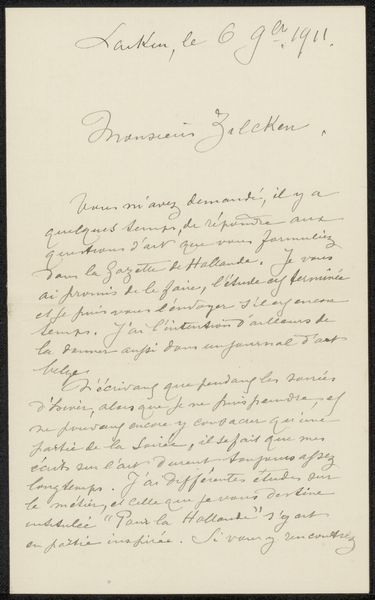 Laeken, le 6 9bre 1911.
Monsieur Zilcken,
Vous m'avez demandé, il y a
quelques temps, de répondre aux
questions d'art que vous formuliez
dans la Gazette de Hollande. Je vous
ai promis de le faire, l'étude est terminée
et je puis vous l'envoyer s'il est encore
temps. J'ai l'intention d'ailleurs de
la donner aussi dans un journal d'art
belge.
N'écrivant que pendant les soirées
d'hiver, alors que je ne puis peindre, et
ne pouvant encore y consacrer qu'une
partie de la Soirée, il se fait que mes
écrits sur l'art durent toujours assez
longtemps. J'ai différentes études sur
le métier, et celle que je vous destine
intitulée "Pour la Hollande" s'y est
en partie inspirée. Si vous y rencontrez